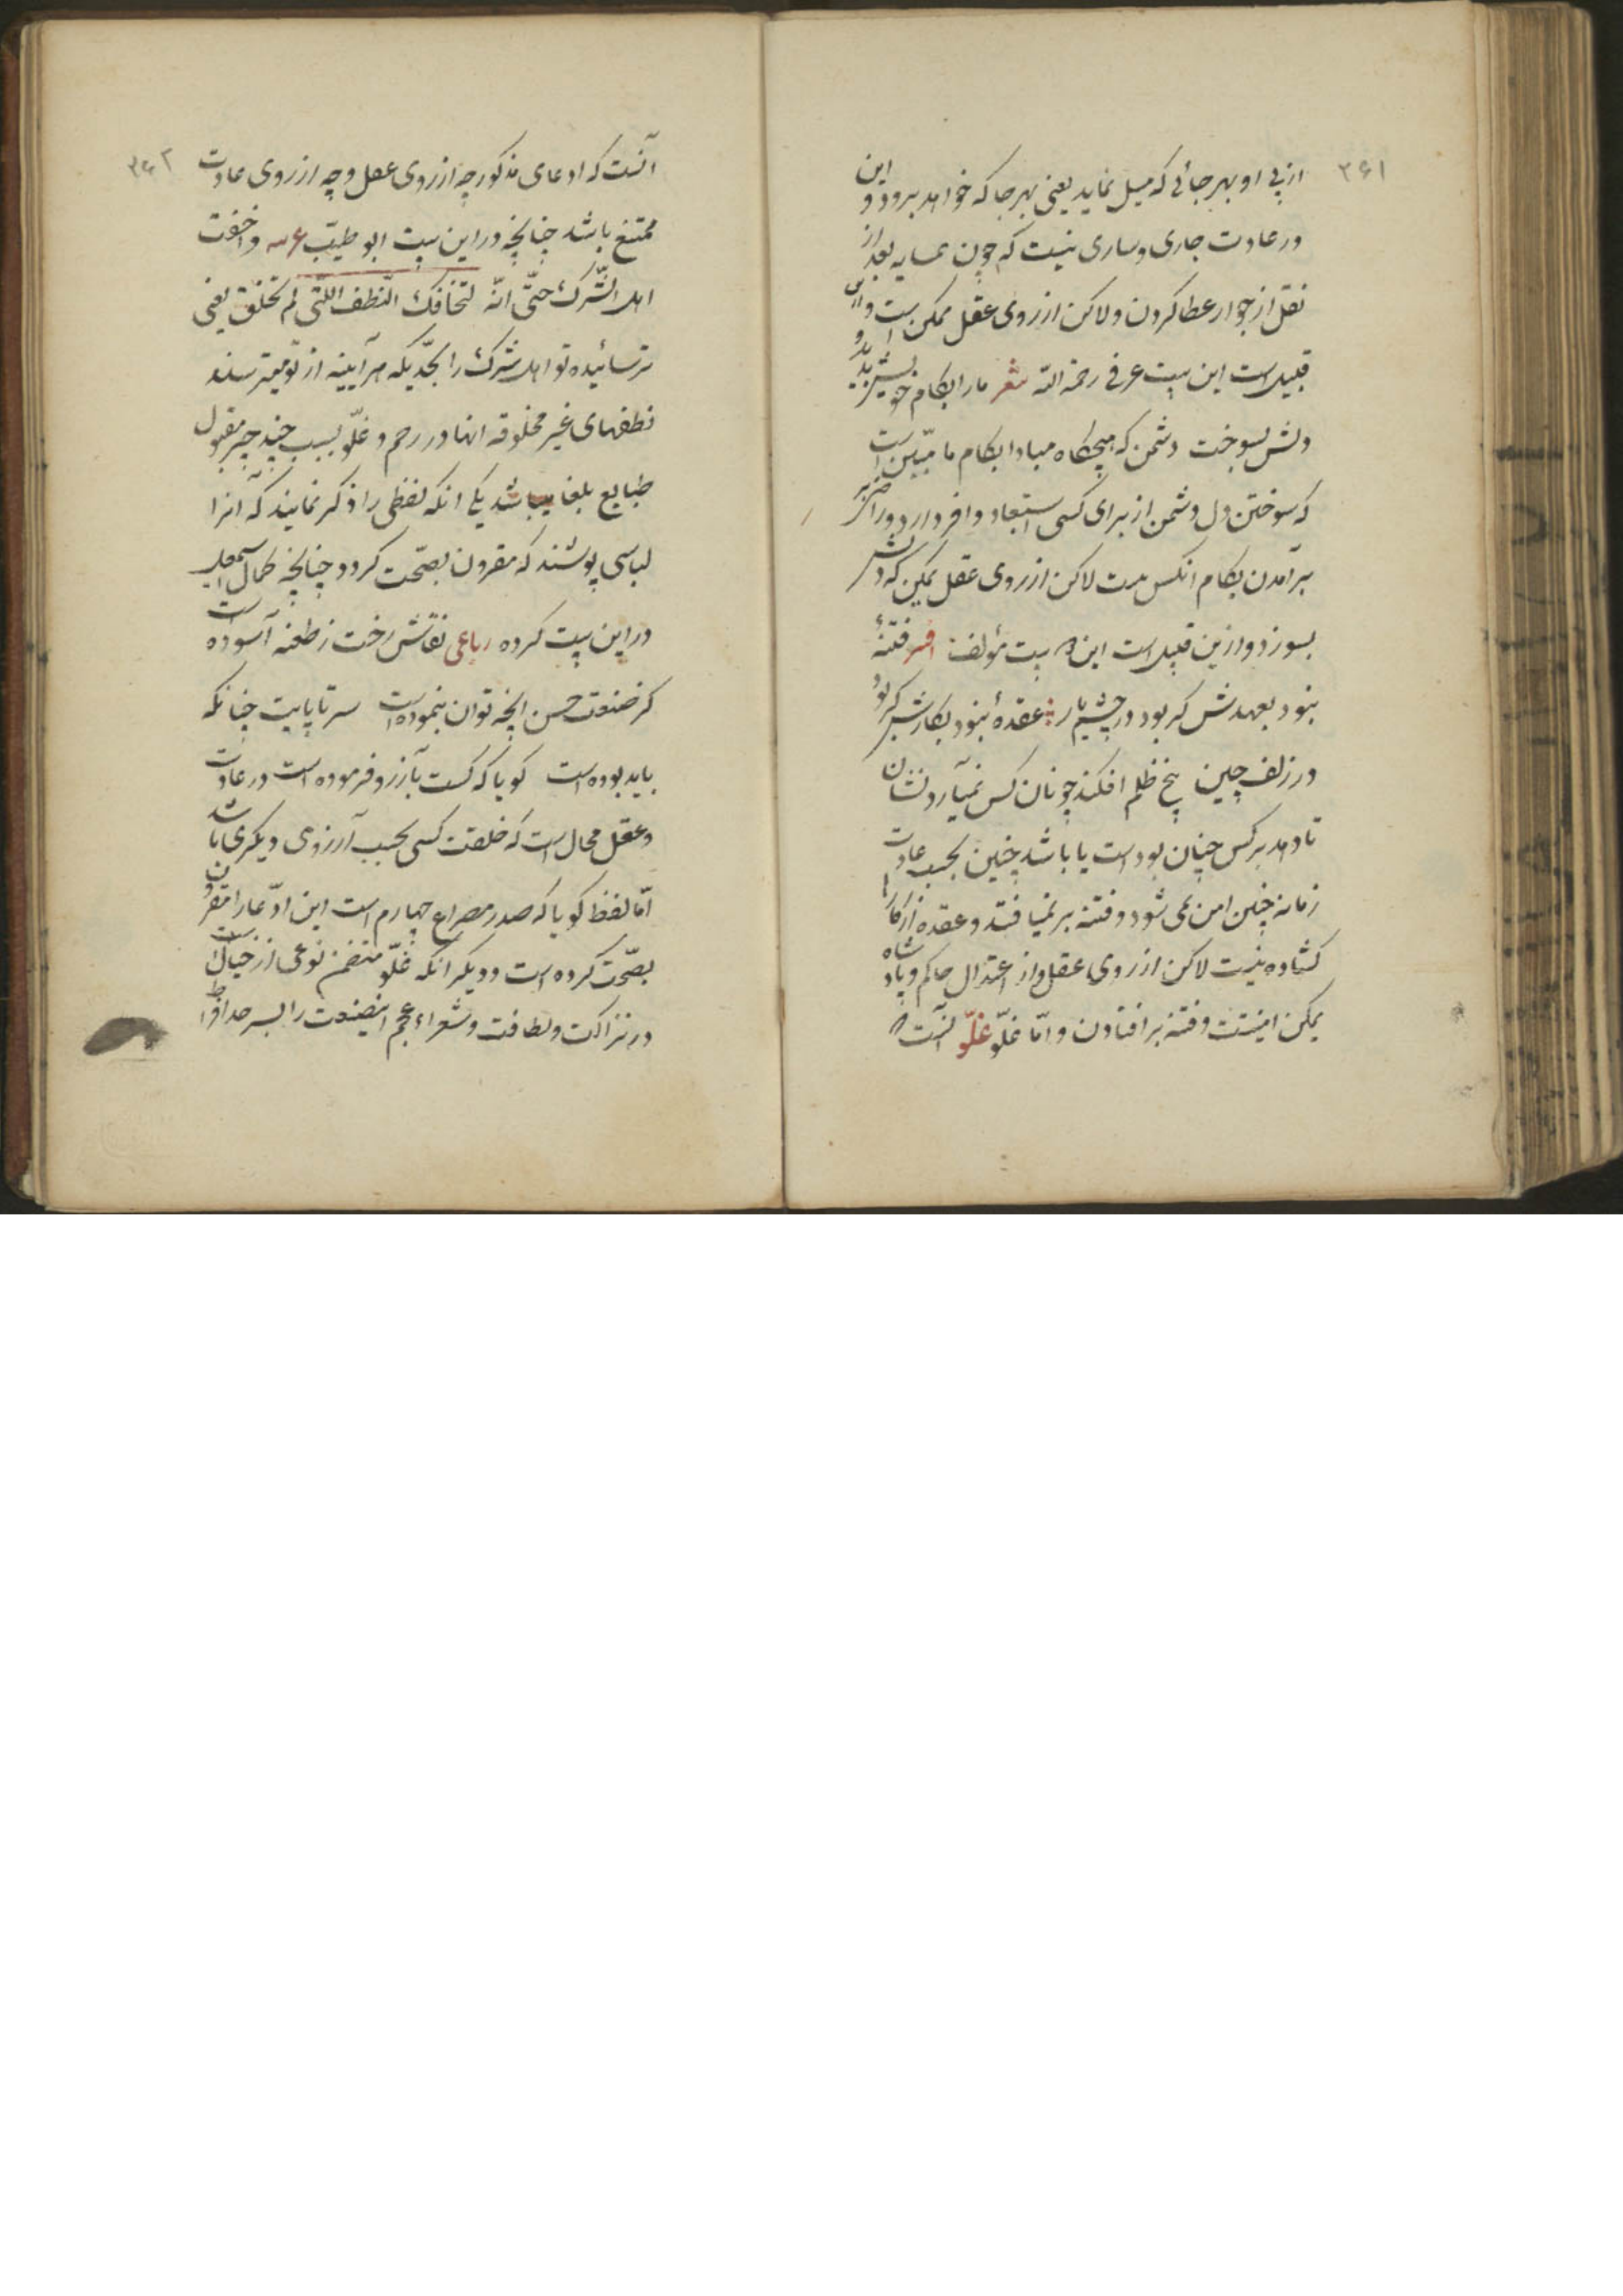 ۳۶۱
از پی او بهر جائی که میل نماید یعنی بهر جا که خواهد برود و این
در عادت جاری و ساری نیست که چون همسایه بعد از
نقل از جوار عطا کردن و لاکن از روی عقل ممکن است و از این
قبیل است این بیت عرفی رحمة الله شعر ما را بکام خویش بدید و
دلش بسوخت دشمن که هیچگاه مبادا بکام ما مبیّن است
که سوختن دل دشمن از برای کسی استبعاد وافر دارد و را
برآمدن بکام انکس هست لاکن از روی عقل یمکن که دلش
بسوزد و ازین قبیل است این بیت مؤلف فتنهٔ
بنود بعهدش کر بود در چشم یار عقدهٔ بنود بکارش کر بود
در زلف چین بیخ ظلم افکند چونان کس نمیآرد نشان
تا دهد بر کس چنان بود است یا باشد چنین بحسب عادت
زمانه چنین امن نمی شود و فتنه بر نمیافتد و عقده از کارها
کشاده نیست لاکن از روی عقل و از اعتدال حاکم و پادشاه
یمکن امنیّت و فتنه بر افتادن و امّا غلّو غلّو آنست که
۳۶۲
آنست که ادعای مذکور چه از روی عقل و چه از روی عادت
ممتنع باشد چنانچه در این بیت ابو طیّب ع و اخفت
اهل الشّرک حتّی انّه لتخافک النّطف اللّتی لم تخلق یعنی
ترسانیده تو اهل شرک را بحدّیکه هر آیینه از تو میترسند
نطفهای غیر مخلوقه انها در رحم و غلّو بسبب چند چیز مقبول
طبایع بلغا میباشد یکی انکه لفظی را ذکر نمایند که آنرا
لباسی پوشند که مقرون بصحّت کردد چنانچه کمال اسمعیل
در این بیت کرده رباعی نقاش رخت ز طعنه آسوده است
کز صنعت حسن انچه توان بنموده است سر تا پایت چنانکه
باید بوده است کویا که کست بآرزو فرموده است در عادت
و عقل محال است که خلقت کسی بحسب آرزوی دیکری باشد
امّا لفظ کویا که صدر مصراع چهارم است این ادّعا را مقرون
بصحّت کرده است و دیکر انکه غلّو متضمن نوعی از خیال است
در نزاکت و لطافت و شعراء عجم اینصنعت را بسر حد افراط